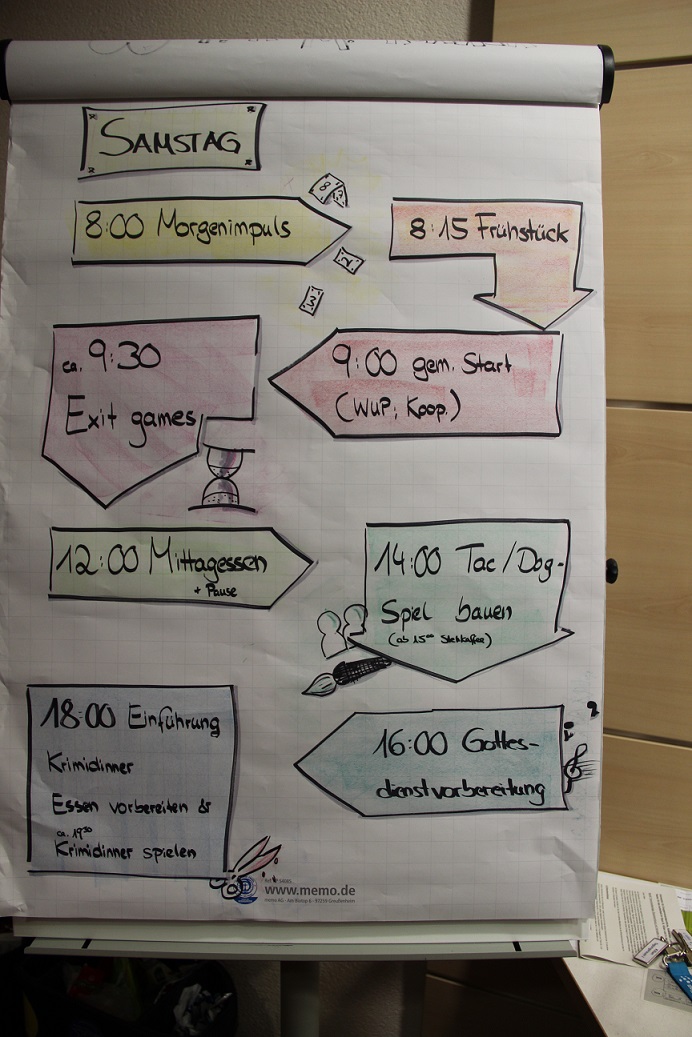 SAMSTAG
8:00 Morgenimpuls
8:15 Frühstück
9:00 gem. Start
(WUP, Koop.)
ca. 9:30
Exit games
12:00 Mittagessen
+ Pause
14:00 Tac/Dog-
Spiel bauen
(ab 15⁰⁰ Stehkaffee)
16:00 Gottes-
dienstvorbereitung
18:00 Einführung
Krimidinner
Essen vorbereiten &
ca. 19³⁰
Krimidinner spielen
www.memo.de